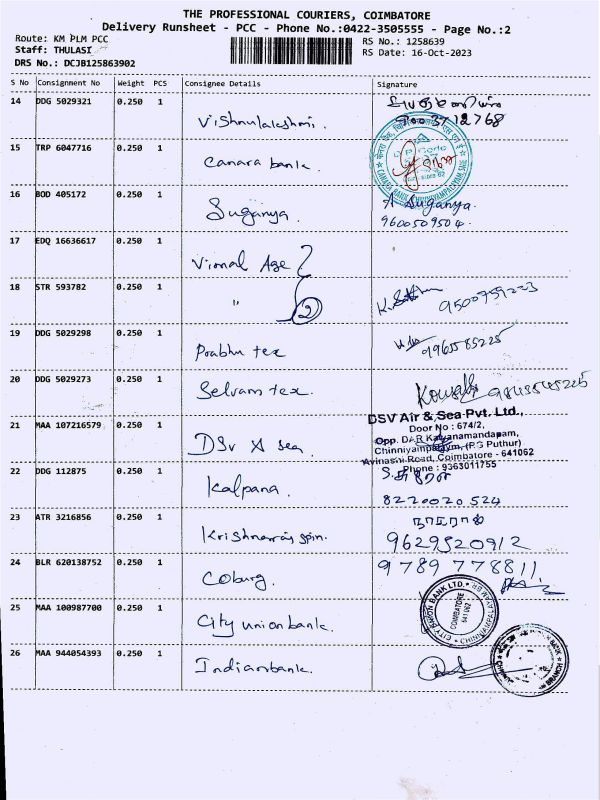 THE PROFESSIONAL COURIERS, COIMBATORE
Delivery Runsheet - PCC - Phone No.:0422-3505555 - Page No.:2
Route: KM PLM PCC
RS No.: 1258639
Staff: THULASI
RS Date: 16-Oct-2023
DRS No.: DCJB125863902
S No Consignment No Weight PCS Consignee Details Signature
14 DDG 5029321 0.250 1 Vishnulakshmi.
15 TRP 6047716 0.250 1 Canara bank.
16 BOD 405172 0.250 1 Suganya. A Suganya.
9600509504.
17 EDQ 16636617 0.250 1 Vimal Age
18 STR 593782 0.250 1 " 2
19 DDG 5029298 0.250 1 Prabhu tex 9965585225
20 DDG 5029273 0.250 1 Selvam tex.
DSV Air & Sea Pvt. Ltd.,
Door No : 674/2,
21 MAA 107216579 0.250 1 DSV A sea. Opp. DAR Kalyanamandapam,
Chinniyampalayam, (RG Puthur)
Avinashi Road, Coimbatore - 641062
Phone : 9363011755
22 DDG 112875 0.250 1 Kalpana.
8220020524
23 ATR 3216856 0.250 1 நாகராஜ்
9629520912
24 BLR 620138752 0.250 1 Coburg. 9789 778811
25 MAA 100987700 0.250 1 City union bank. CITY UNION BANK LTD.
COIMBATORE
641 062
26 MAA 944054393 0.250 1 Indianbank.